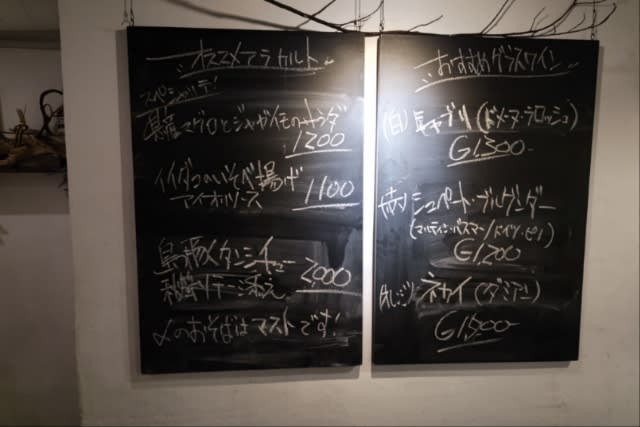 オススメアラカルト
スペシャリテ!
マグロとジャガイモのサラダ
1200
イイダコのいそべ揚げ
アイオリソース 1100
タンシチュー
添え 2,000
〆のおそばはマストです!
おすすめグラスワイン
(白) シャブリ (ドメーヌ・ラロッシュ)
G1,500
シュペート・ブルグンダー
(マルティン・バスマー/ドイツ・ピノ)
G1,200
オレンジ ネカイ (ダミアン)
G1,500